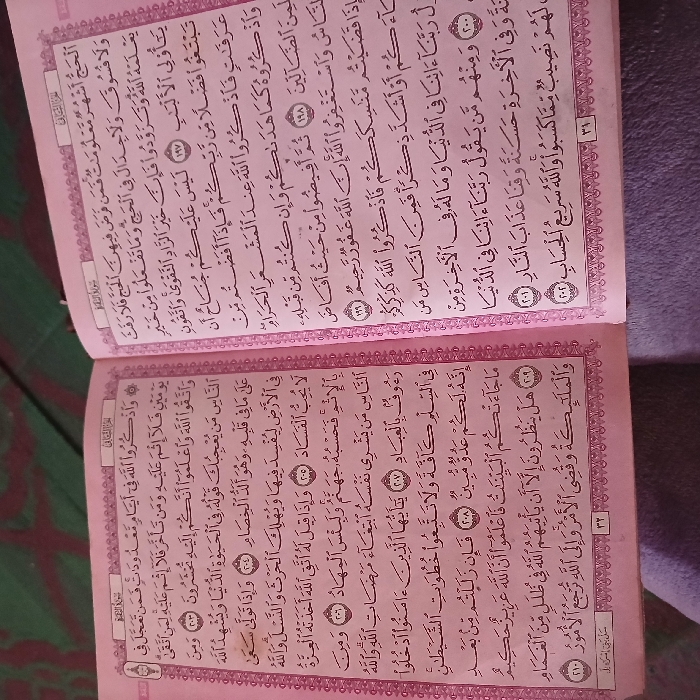 الجزء الثاني
سورة البقرة
ٱلْحَجُّ أَشْهُرٌ مَّعْلُومَٰتٌ فَمَن فَرَضَ فِيهِنَّ ٱلْحَجَّ فَلَا رَفَثَ
وَلَا فُسُوقَ وَلَا جِدَالَ فِى ٱلْحَجِّ وَمَا تَفْعَلُوا۟ مِنْ خَيْرٍ
يَعْلَمْهُ ٱللَّهُ وَتَزَوَّدُوا۟ فَإِنَّ خَيْرَ ٱلزَّادِ ٱلتَّقْوَىٰ وَٱتَّقُونِ
يَٰٓأُو۟لِى ٱلْأَلْبَٰبِ ١٩٧ لَيْسَ عَلَيْكُمْ جُنَاحٌ أَن
تَبْتَغُوا۟ فَضْلًا مِّن رَّبِّكُمْ فَإِذَآ أَفَضْتُم مِّنْ
عَرَفَٰتٍ فَٱذْكُرُوا۟ ٱللَّهَ عِندَ ٱلْمَشْعَرِ ٱلْحَرَامِ
وَٱذْكُرُوهُ كَمَا هَدَىٰكُمْ وَإِن كُنتُم مِّن قَبْلِهِۦ
لَمِنَ ٱلضَّآلِّينَ ١٩٨ ثُمَّ أَفِيضُوا۟ مِنْ حَيْثُ أَفَاضَ
ٱلنَّاسُ وَٱسْتَغْفِرُوا۟ ٱللَّهَ إِنَّ ٱللَّهَ غَفُورٌ رَّحِيمٌ ١٩٩
قَضَيْتُم مَّنَٰسِكَكُمْ فَٱذْكُرُوا۟ ٱللَّهَ كَذِكْرِكُمْ
ءَابَآءَكُمْ أَوْ أَشَدَّ ذِكْرًا فَمِنَ ٱلنَّاسِ مَن
رَبَّنَآ ءَاتِنَا فِى ٱلدُّنْيَا وَمَا لَهُۥ فِى ٱلْءَاخِرَةِ مِنْ
٢٠٠ وَمِنْهُم مَّن يَقُولُ رَبَّنَآ ءَاتِنَا فِى ٱلدُّنْيَا
وَفِى ٱلْءَاخِرَةِ حَسَنَةً وَقِنَا عَذَابَ ٱلنَّارِ ٢٠١
لَهُمْ نَصِيبٌ مِّمَّا كَسَبُوا۟ وَٱللَّهُ سَرِيعُ ٱلْحِسَابِ ٢٠٢
٣١
الجزء الثاني
سورة البقرة
وَٱذْكُرُوا۟ ٱللَّهَ فِىٓ أَيَّامٍ مَّعْدُودَٰتٍ فَمَن تَعَجَّلَ فِى
يَوْمَيْنِ فَلَآ إِثْمَ عَلَيْهِ وَمَن تَأَخَّرَ فَلَآ إِثْمَ عَلَيْهِ لِمَنِ ٱتَّقَىٰ
وَٱتَّقُوا۟ ٱللَّهَ وَٱعْلَمُوٓا۟ أَنَّكُمْ إِلَيْهِ تُحْشَرُونَ ٢٠٣ وَمِنَ
ٱلنَّاسِ مَن يُعْجِبُكَ قَوْلُهُۥ فِى ٱلْحَيَوٰةِ ٱلدُّنْيَا وَيُشْهِدُ ٱللَّهَ
عَلَىٰ مَا فِى قَلْبِهِۦ وَهُوَ أَلَدُّ ٱلْخِصَامِ ٢٠٤ وَإِذَا تَوَلَّىٰ سَعَىٰ
فِى ٱلْأَرْضِ لِيُفْسِدَ فِيهَا وَيُهْلِكَ ٱلْحَرْثَ وَٱلنَّسْلَ وَٱللَّهُ
لَا يُحِبُّ ٱلْفَسَادَ ٢٠٥ وَإِذَا قِيلَ لَهُ ٱتَّقِ ٱللَّهَ أَخَذَتْهُ ٱلْعِزَّةُ
بِٱلْإِثْمِ فَحَسْبُهُۥ جَهَنَّمُ وَلَبِئْسَ ٱلْمِهَادُ ٢٠٦ وَمِنَ
ٱلنَّاسِ مَن يَشْرِى نَفْسَهُ ٱبْتِغَآءَ مَرْضَاتِ ٱللَّهِ وَٱللَّهُ
رَءُوفٌۢ بِٱلْعِبَادِ ٢٠٧ يَٰٓأَيُّهَا ٱلَّذِينَ ءَامَنُوا۟ ٱدْخُلُوا۟
فِى ٱلسِّلْمِ كَآفَّةً وَلَا تَتَّبِعُوا۟ خُطُوَٰتِ ٱلشَّيْطَٰنِ
إِنَّهُۥ لَكُمْ عَدُوٌّ مُّبِينٌ ٢٠٨ فَإِن زَلَلْتُم مِّنۢ بَعْدِ
مَا جَآءَتْكُمُ ٱلْبَيِّنَٰتُ فَٱعْلَمُوٓا۟ أَنَّ ٱللَّهَ عَزِيزٌ حَكِيمٌ
٢٠٩ هَلْ يَنظُرُونَ إِلَّآ أَن يَأْتِيَهُمُ ٱللَّهُ فِى ظُلَلٍ مِّنَ ٱلْغَمَامِ
وَٱلْمَلَٰٓئِكَةُ وَقُضِىَ ٱلْأَمْرُ وَإِلَى ٱللَّهِ تُرْجَعُ ٱلْأُمُورُ ٢١٠
٣٢